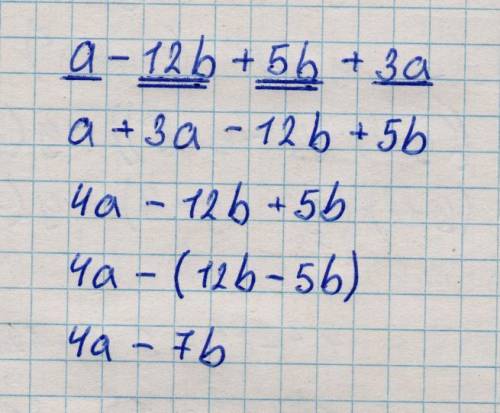 a - 12b + 5b + 3a
a + 3a - 12b + 5b
4a - 12b + 5b
4a - (12b - 5b)
4a - 7b